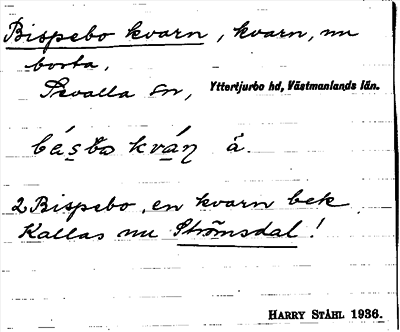 Bispebo kvarn, kvarn, nu
borta,
Sevalla sn, Yttertjurbo hd, Västmanlands län.
kván å.
2 Bispebo, en kvarn bek
Kallas nu Strömsdal!
HARRY STÅHL 1936.